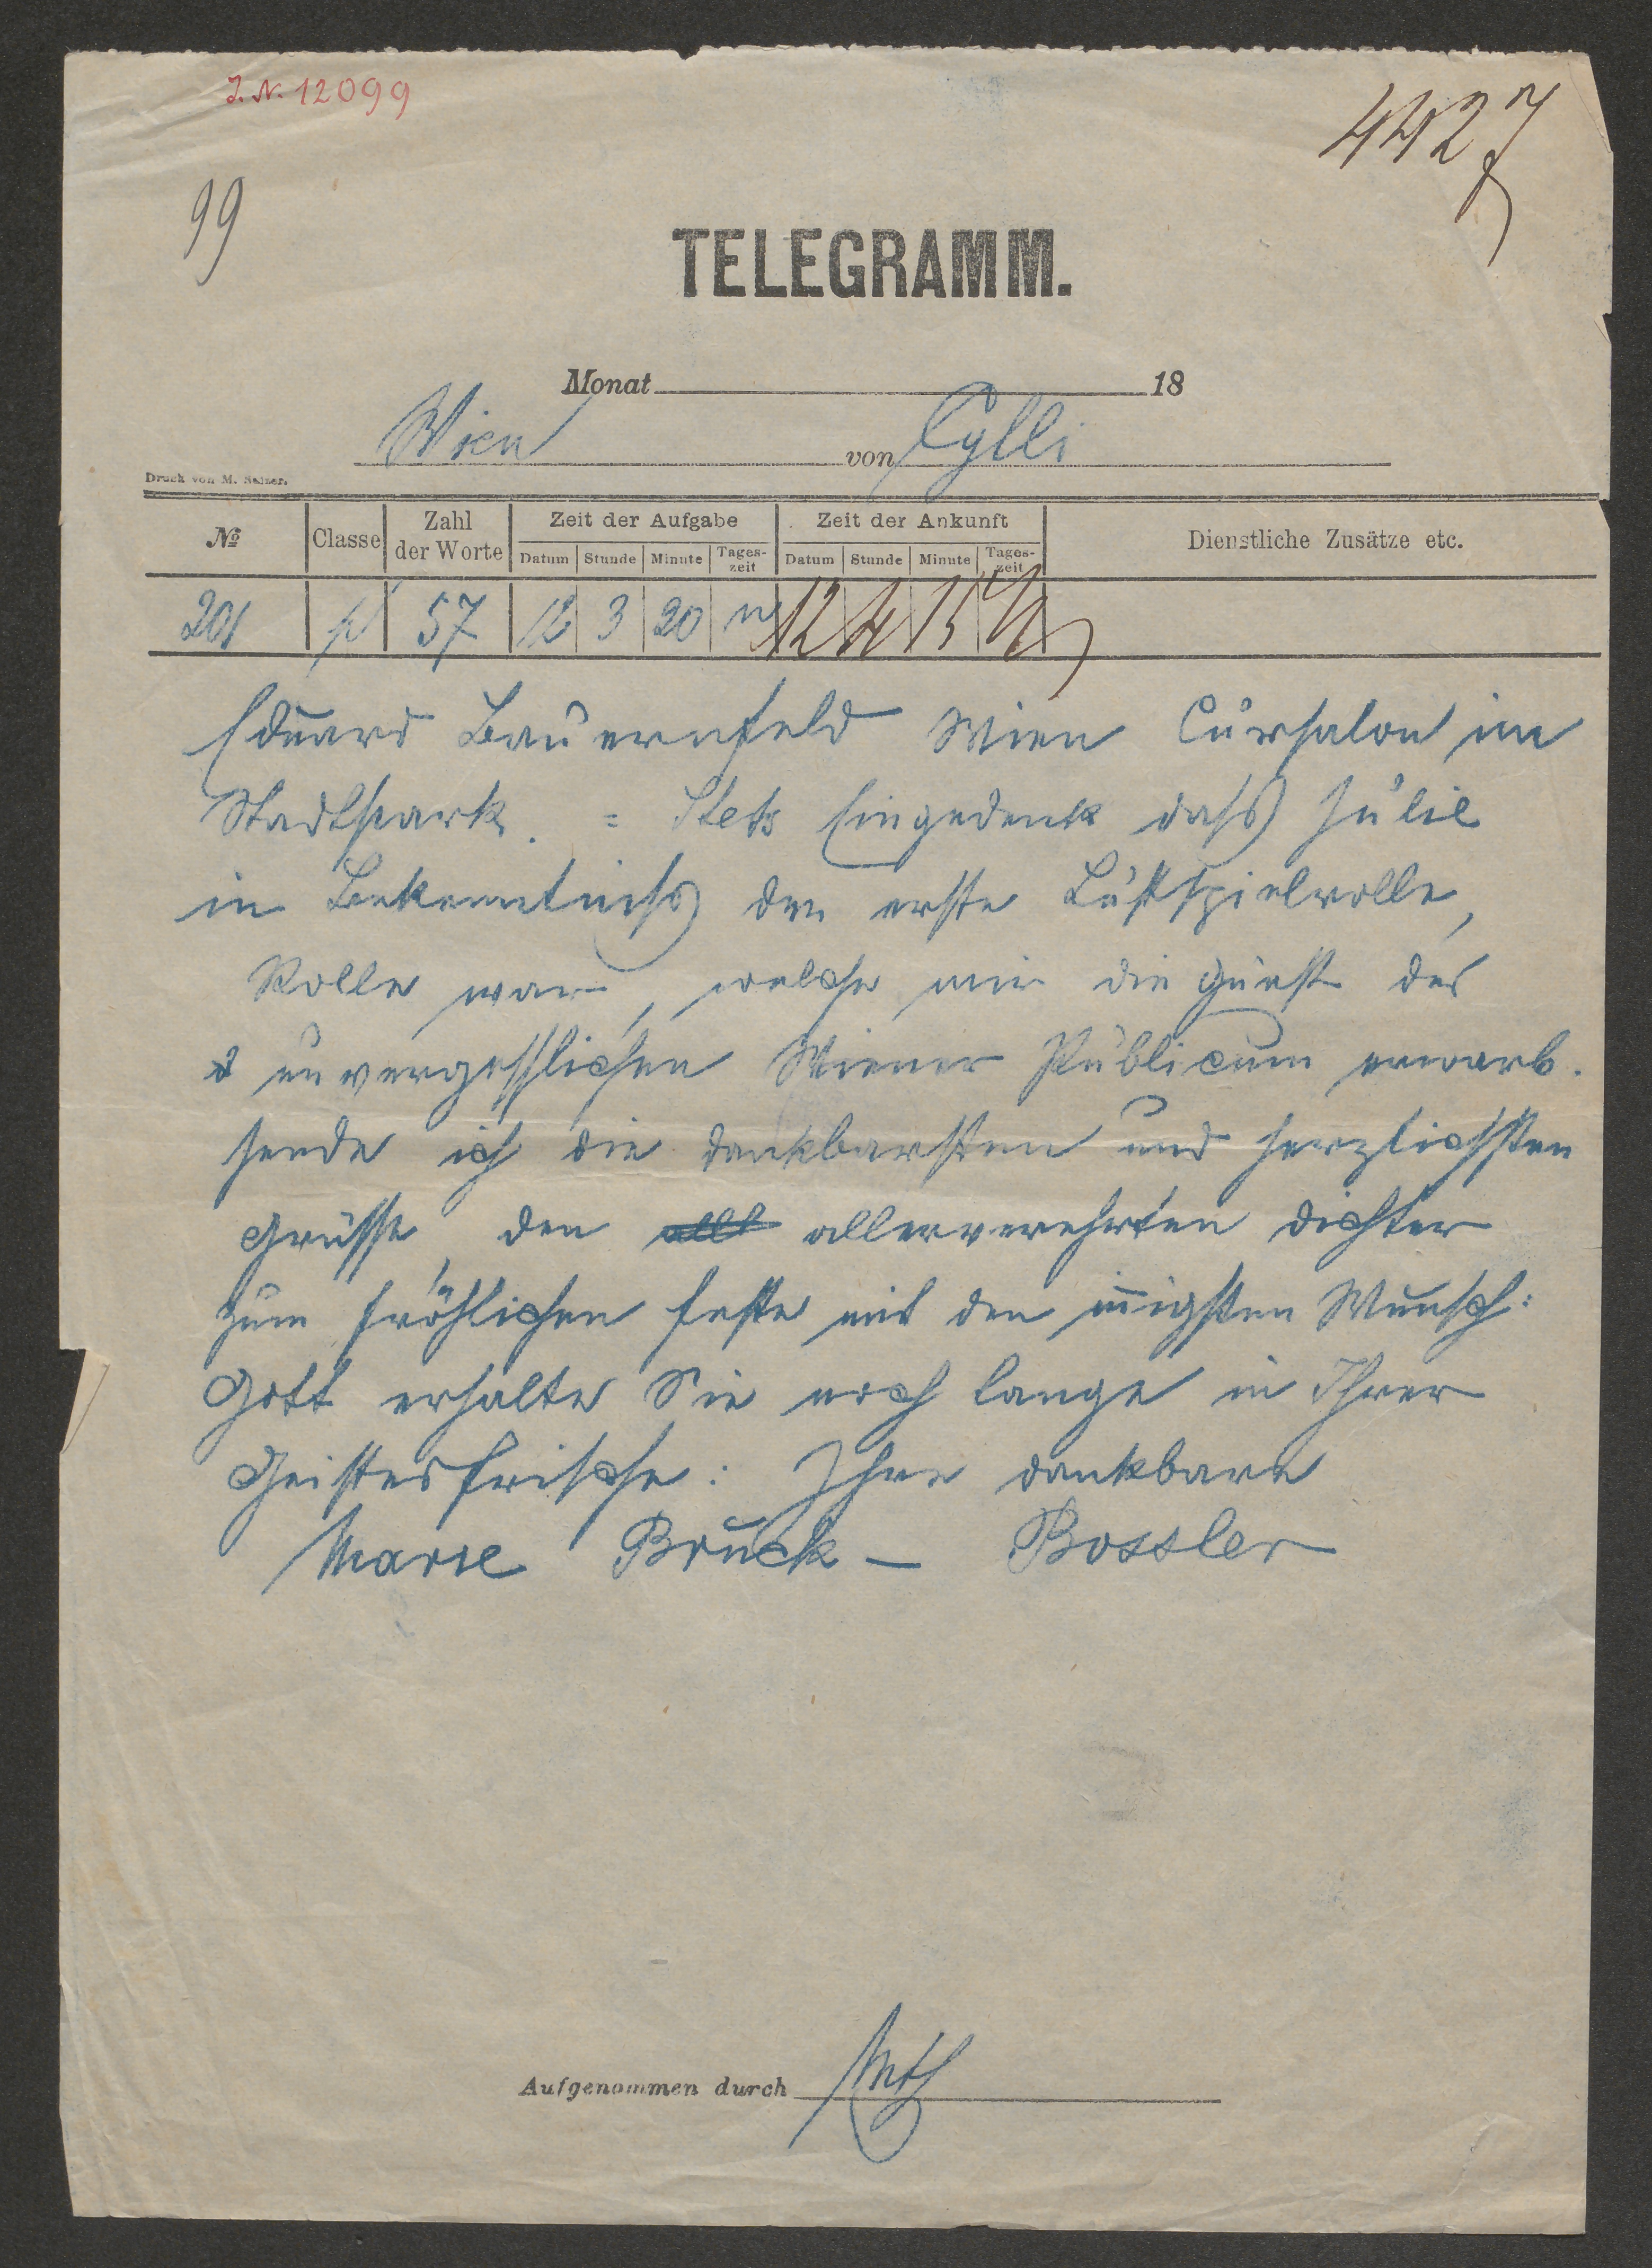 J.N. 12099
4427
99
TELEGRAMM.
Monat 18
Wien von Cylli
Druck von M. Salzer.
№ Classe Zahl der Worte Zeit der Aufgabe Zeit der Ankunft Dienstliche Zusätze etc.
Datum Stunde Minute Tages-zeit Datum Stunde Minute Tages-zeit
201 p 57 12 3 20 n 12 4 15
Eduard Bauernfeld Wien Cursalon im
Stadtpark. = Stets Eingedenk dass Julie
in Bekenntniss den erste Lustspielrolle,
Rolle war, welche mir die Gunst des
unvergesslichen Wiener Publicum erwarb.
sende ich die dankbarsten und herzlichsten
Grüsse, den all allerverehrten Dichter
zum fröhlichen Feste mit den innigsten Wunsch:
Gott erhalte Sie noch lange in Ihrer
Geistesfrische: Ihre dankbare
Marie Bruck - Bossler
Aufgenommen durch